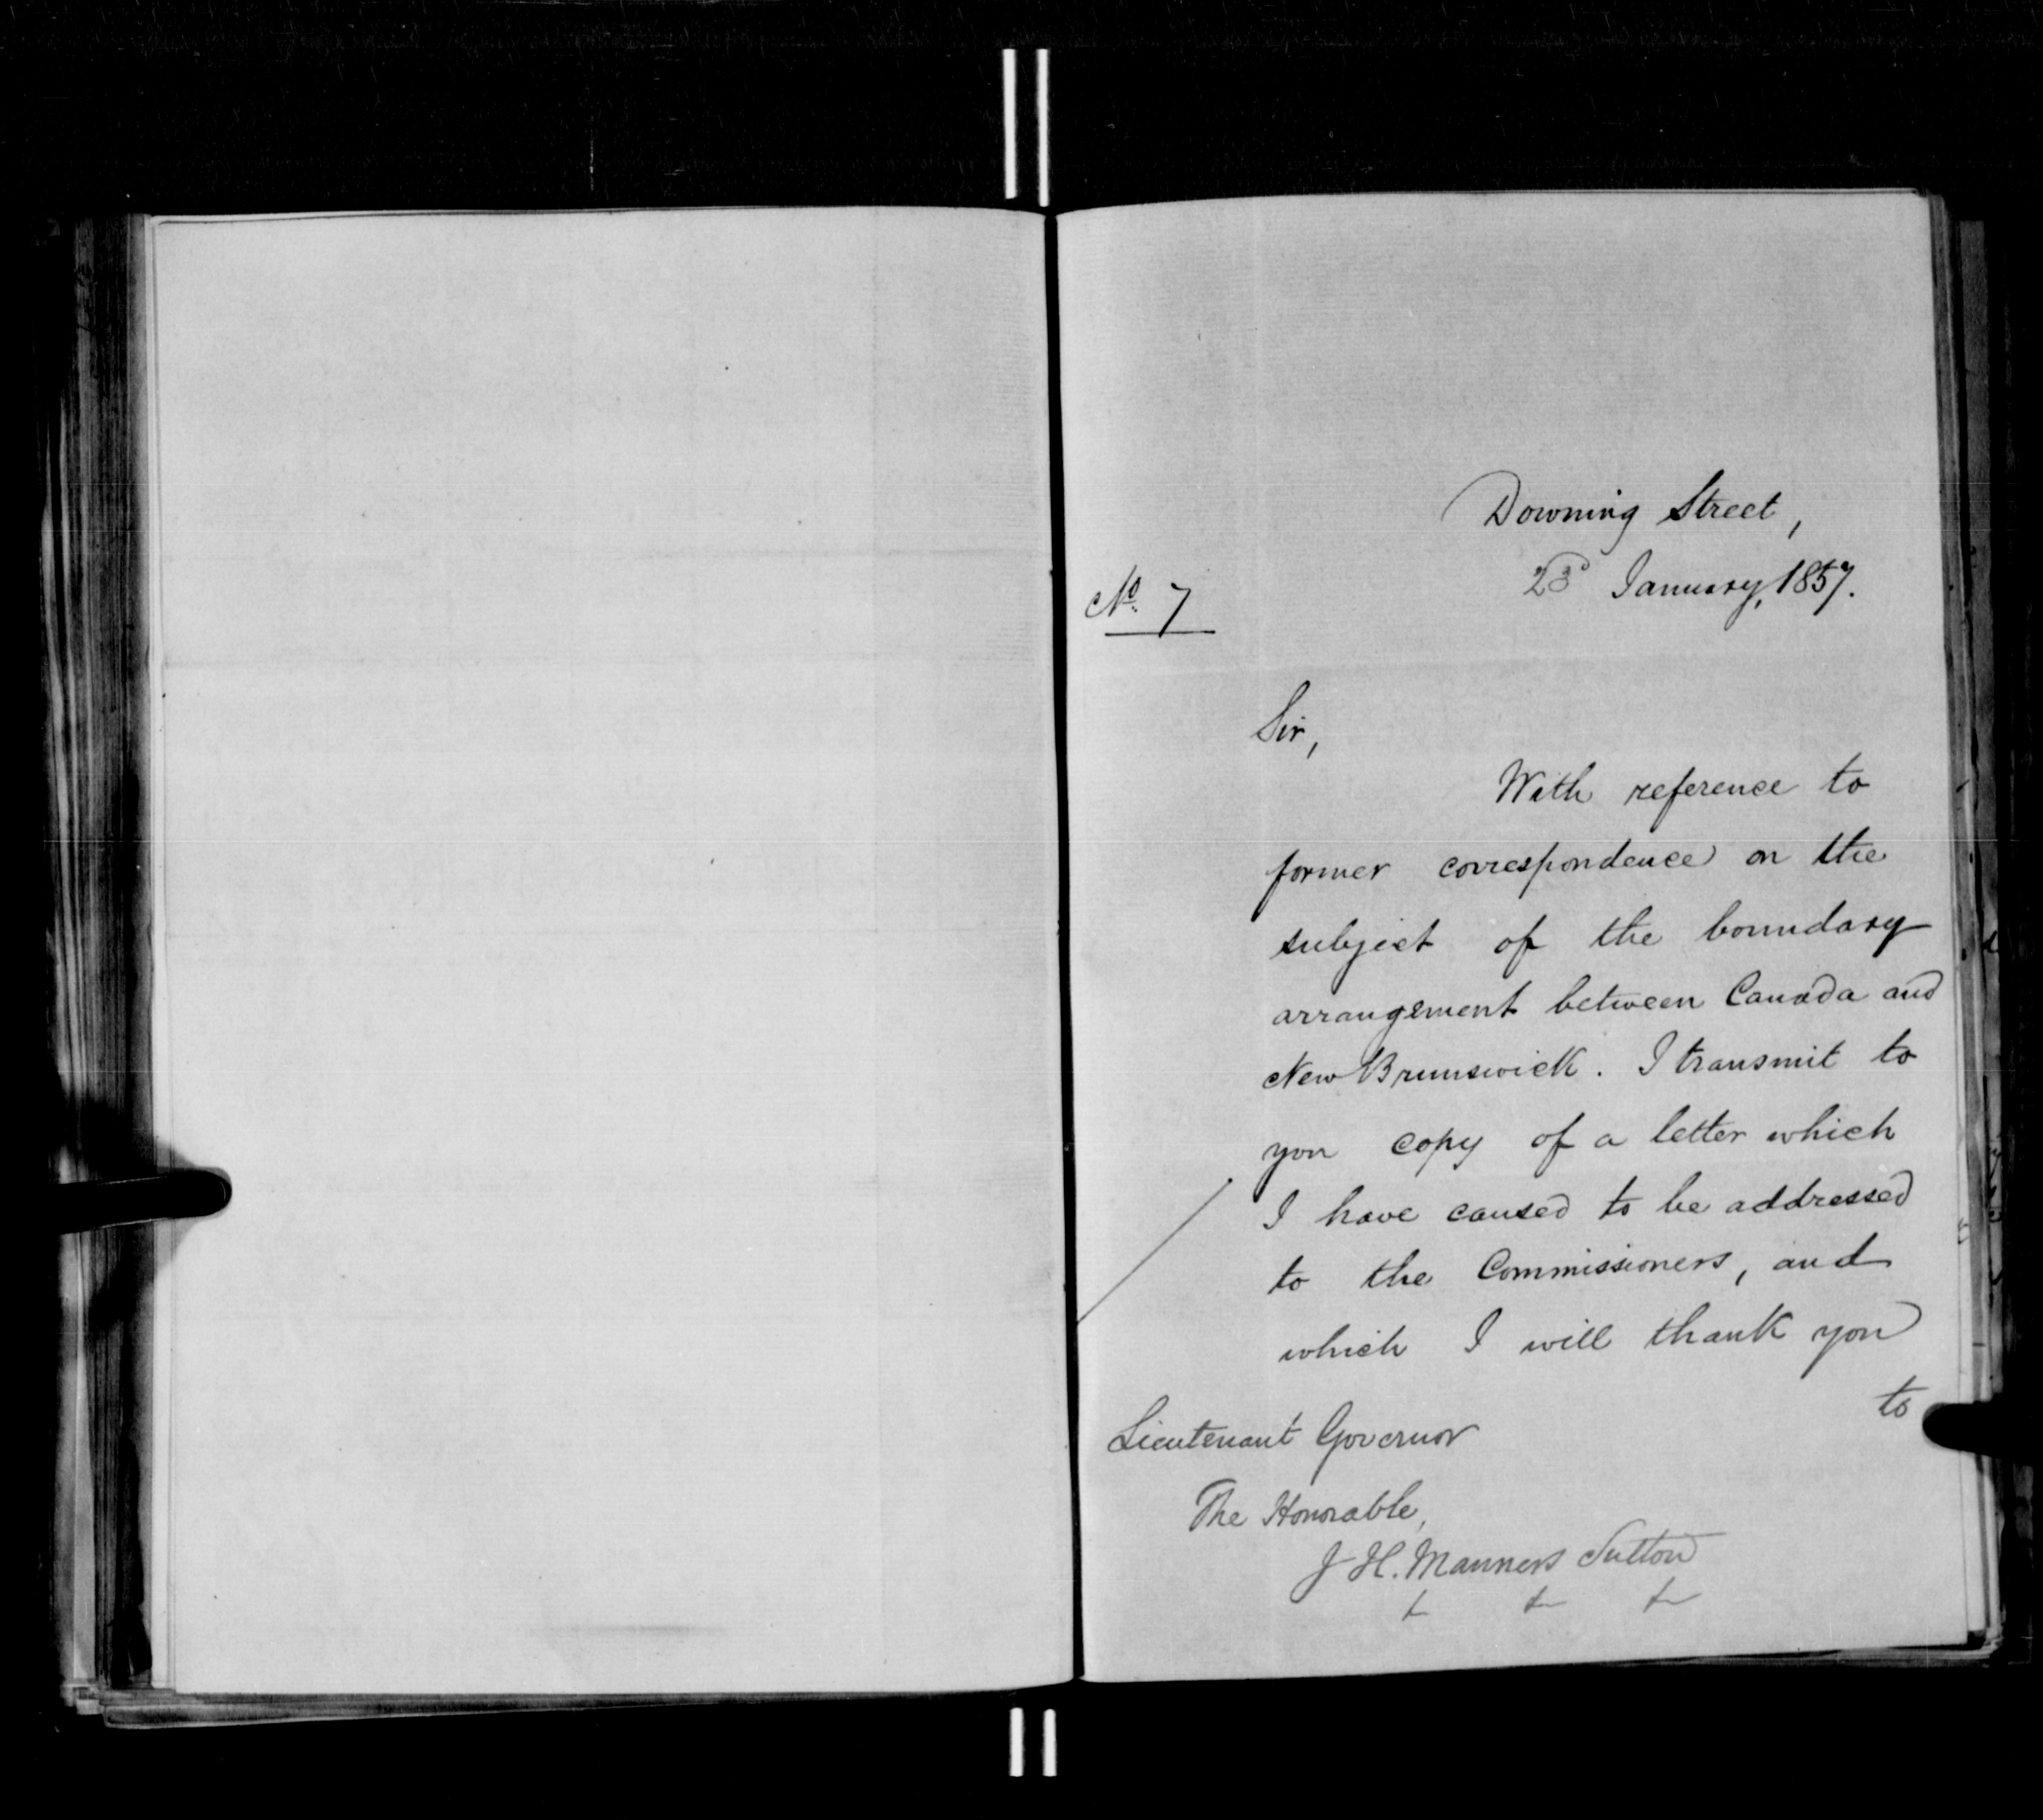 Downing Street,
23d January, 1857.
No. 7
Sir,
With reference to
former correspondence on the
subject of the boundary
arrangement between Canada and
New Brunswick. I transmit to
you copy of a letter which
I have caused to be addressed
to the Commissioners, and
which I will thank you
to
Lieutenant Governor
The Honorable,
J H. Manners Sutton